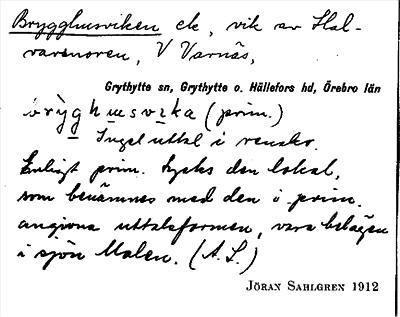 Brygghusviken ek, vik av Hal-
varsnoren, V Varnäs,
Grythytte sn, Grythytte o. Hällefors hd, Örebro län
(prim.)
Inget uttal i rensko.
Enligt prim. tycks den lokal,
som benämnes med den i prim.
angivna uttalsformen, vara belägen
i sjön Malen. (A.L.)
JÖRAN SAHLGREN 1912